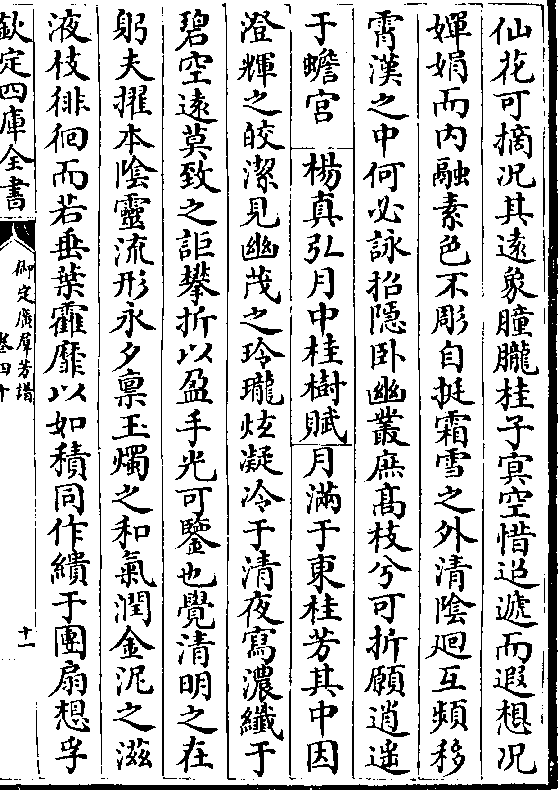 仙花可摘况其遠象朣朧桂子㝠空惜迢遞而遐想况
嬋娟而内融素色不彫自挺霜雪之外清陰廻互頻移
霄漢之中何必詠招隱卧幽叢庶髙枝兮可折願逍遥
于蟾宫　楊真弘月中桂樹賦　月滿于東桂芳其中因
澄輝之皎潔見幽茂之玲瓏炫凝冷于清夜寫濃纖于
碧空遠莫致之詎攀折以盈手光可鑒也覺清明之在
躬夫擢本陰靈流形永夕禀玉燭之和氣潤金泥之滋
液枝徘徊而若垂葉霍靡以如積同作繢于團扇想孚
欽定四庫全書
御定廣羣芳譜
卷四十
十一